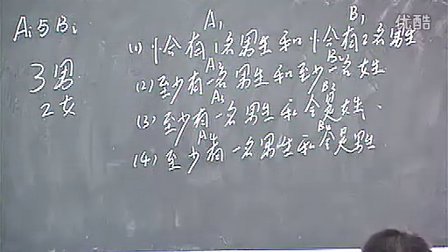 优酷
Ai与Bi
3男
2女
A1 B1
(1) 恰有1名男生和恰有2名男生
A2 B2
(2) 至少有一名男生和至少一名女生
A3 B3
(3) 至少有一名男生和全是女生
A4 B4
(4) 至少有一名男生和全是男生